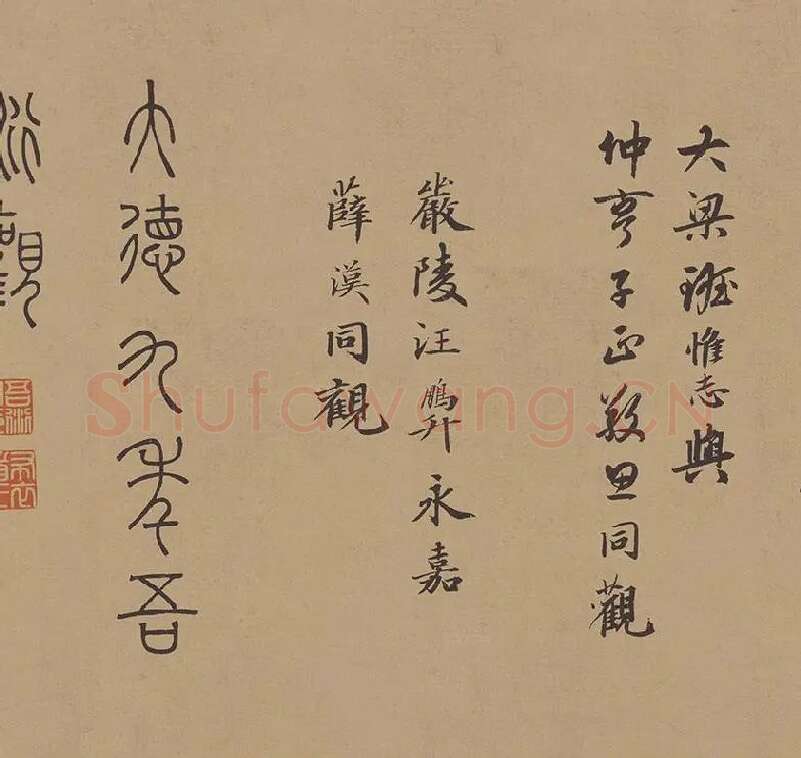 大梁班惟志與
仲亨子正同觀
嚴陵汪鵬升永嘉
薛漢同觀
大德九年吾
衍觀
Shufawang.CN